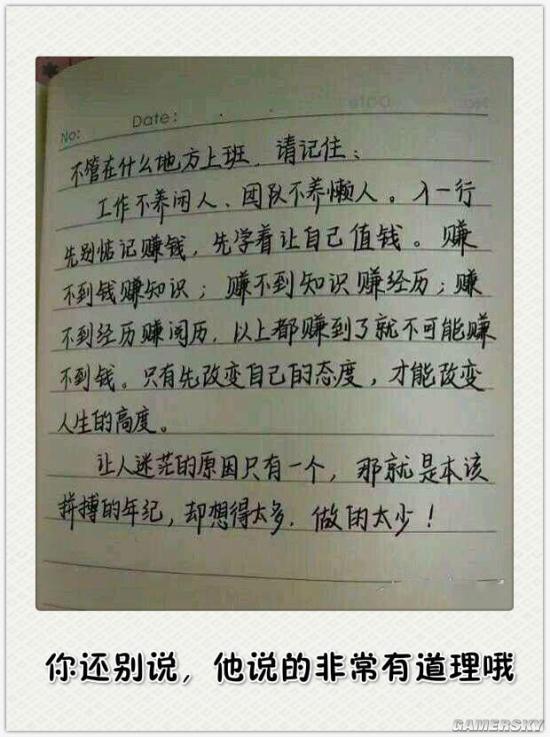 No:
Date:
不管在什么地方上班，请记住：
工作不养闲人、团队不养懒人。入一行
先别惦记赚钱，先学着让自己值钱。赚
不到钱赚知识；赚不到知识赚经历；赚
不到经历赚阅历，以上都赚到了就不可能赚
不到钱。只有先改变自己的态度，才能改变
人生的高度。
让人迷茫的原因只有一个，那就是本该
拼搏的年纪，却想得太多，做的太少！
你还别说，他说的非常有道理哦
GAMERSKY